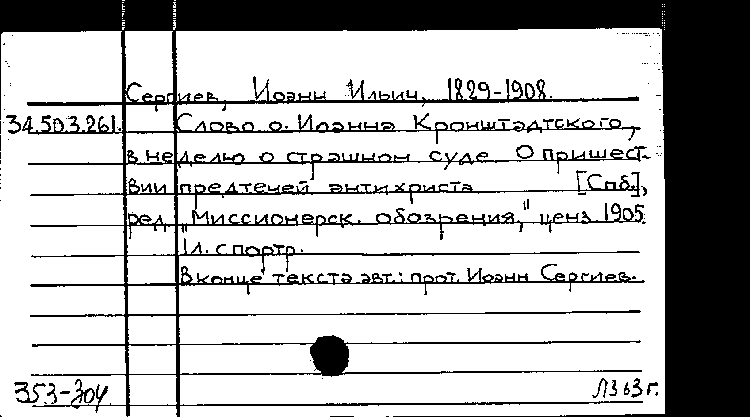 Сергиев, Иоанн Ильич, 1829-1908.
34.50.3.261. Слово о. Иоанна Кронштадтского,
в неделю о страшном суде. О пришест-
вии предтечей антихриста [Спб.],
ред. „Миссионерск. обозрения," ценз. 1905.
1л. с портр.
В конце текста авт.: прот. Иоанн Сергиев.
353-304 Л363г.